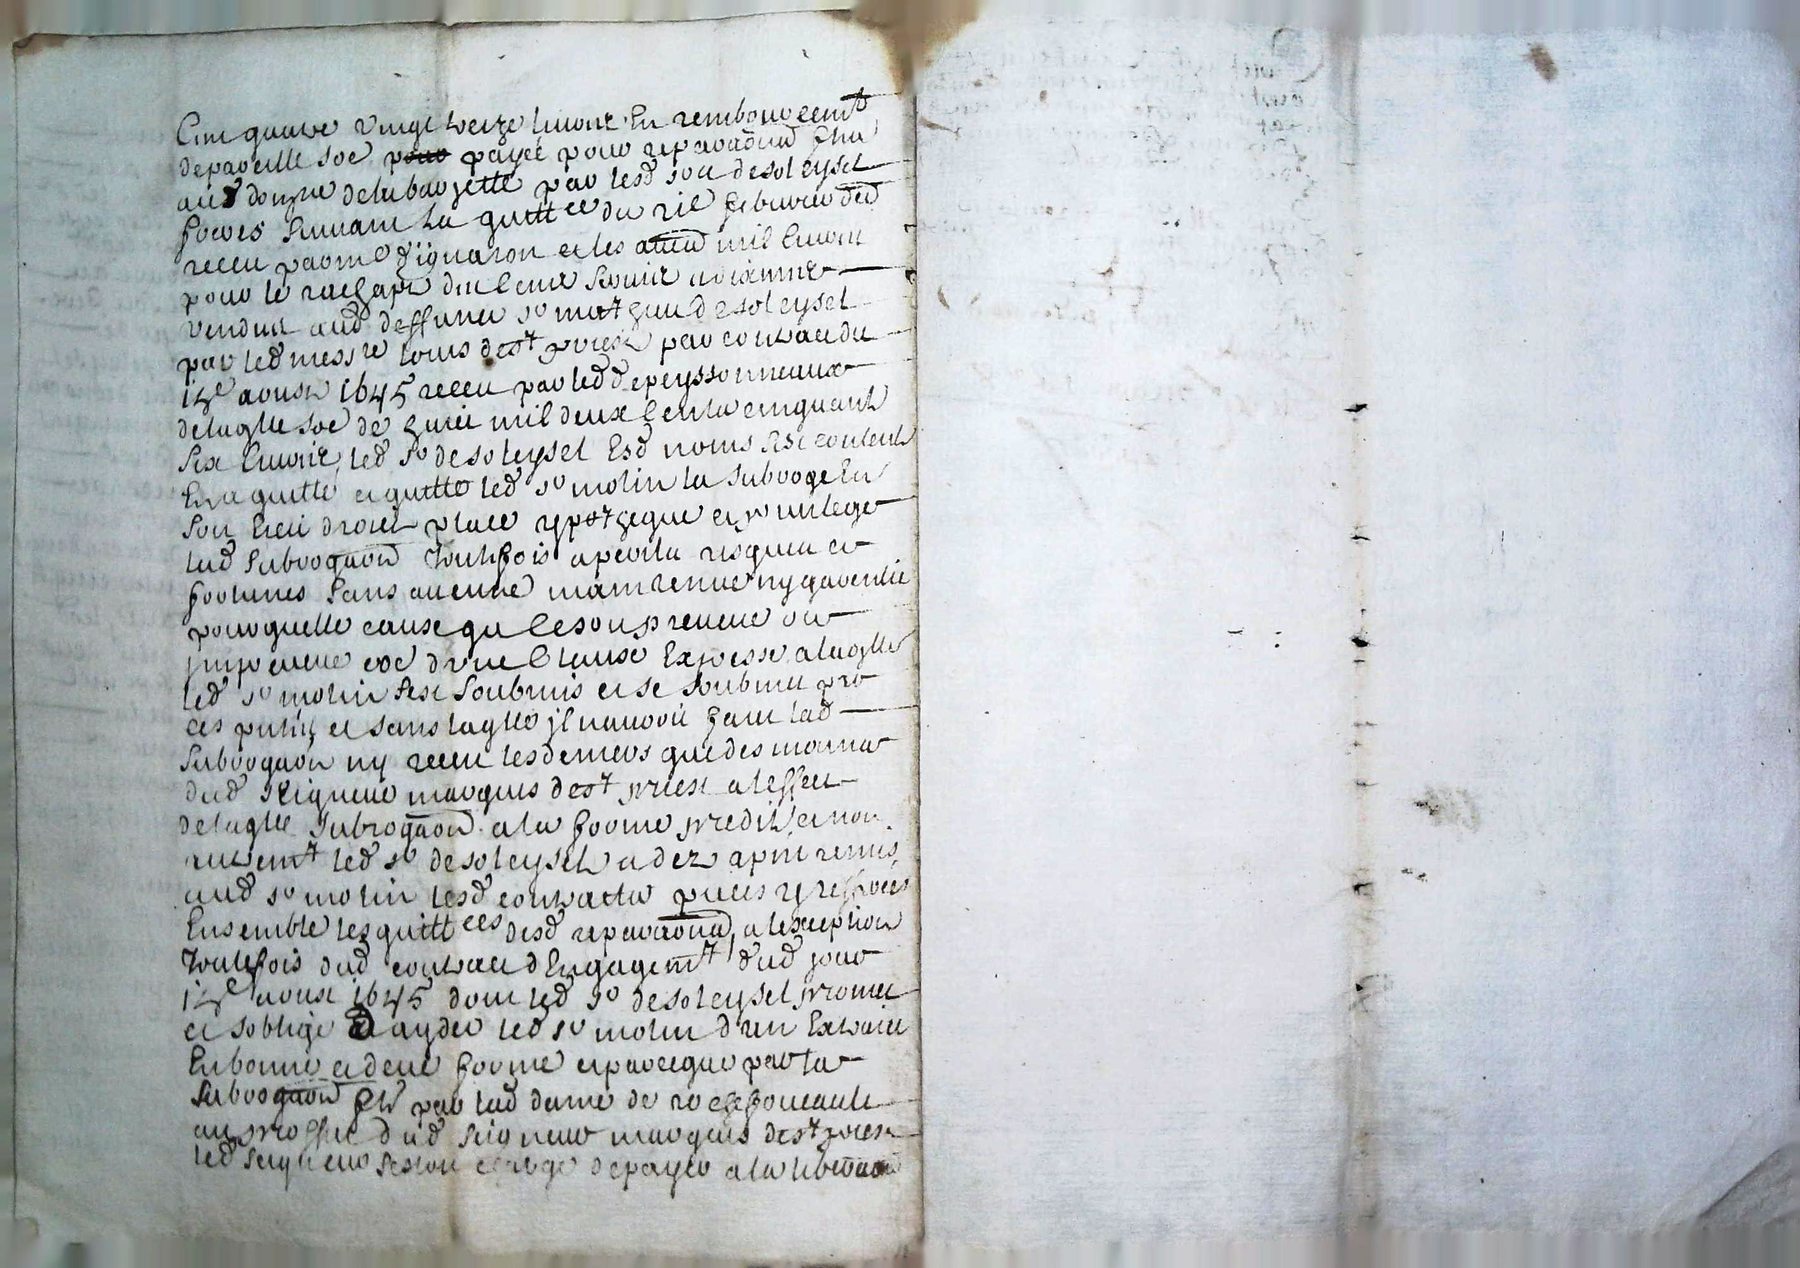 Cinq quatre vingt treize livres En remboursemt
de pareille soe payée pour reparaõns
aud domne de la barjette par lesd srs de soleysel
freres suivant la quittce du xie febvrier dud
receu par me vignaron et les autres mil livres
pour le rachapt du cens
vendus aud deffunct sr mathieu de soleysel
par led messre louis de st priest par contract du
14e aoust 1645 receu par led depeyssonneaux
de laqlle soe de huict mil deux cents cinquante
six livres led sr de soleysel Esd noms sest contenté
En a quitté et quitte led sr molin la subrogé En
son lieu droict place ypotheque et privilege
lad subrogaõn toutefois a perils risques et
fortunes sans aucune maintenue ny garentie
pour quelle cause que ce soit preveue ou
impreveue car d'une clause Expresse a laqlle
led sr molin sest soubmis et se soubmet par
ces pntes et sans laqlle il nauroit faict lad
subrogaõn ny receu les deniers que des mains
dud seigneur marquis de st priest a leffect
de laqlle subrogaõn a la forme predite et non
autremt led sr de soleysel a dez a pnt remis
aud sr molin lesd contracts pieces y
Ensemble les quittces desd reparaõns a lexception
toutefois dud contract dEngagemt dud jour
14e aoust 1645 dont led sr de soleysel promet
et soblige dayder led sr molin d'un Extraict
En bonne et deue forme et parceque par la
subrogaõn fte par lad dame de rochefoucault
au proffict dud seigneur marquis de st priest
led seigneur sestoit chargé de payer a la liberaõn